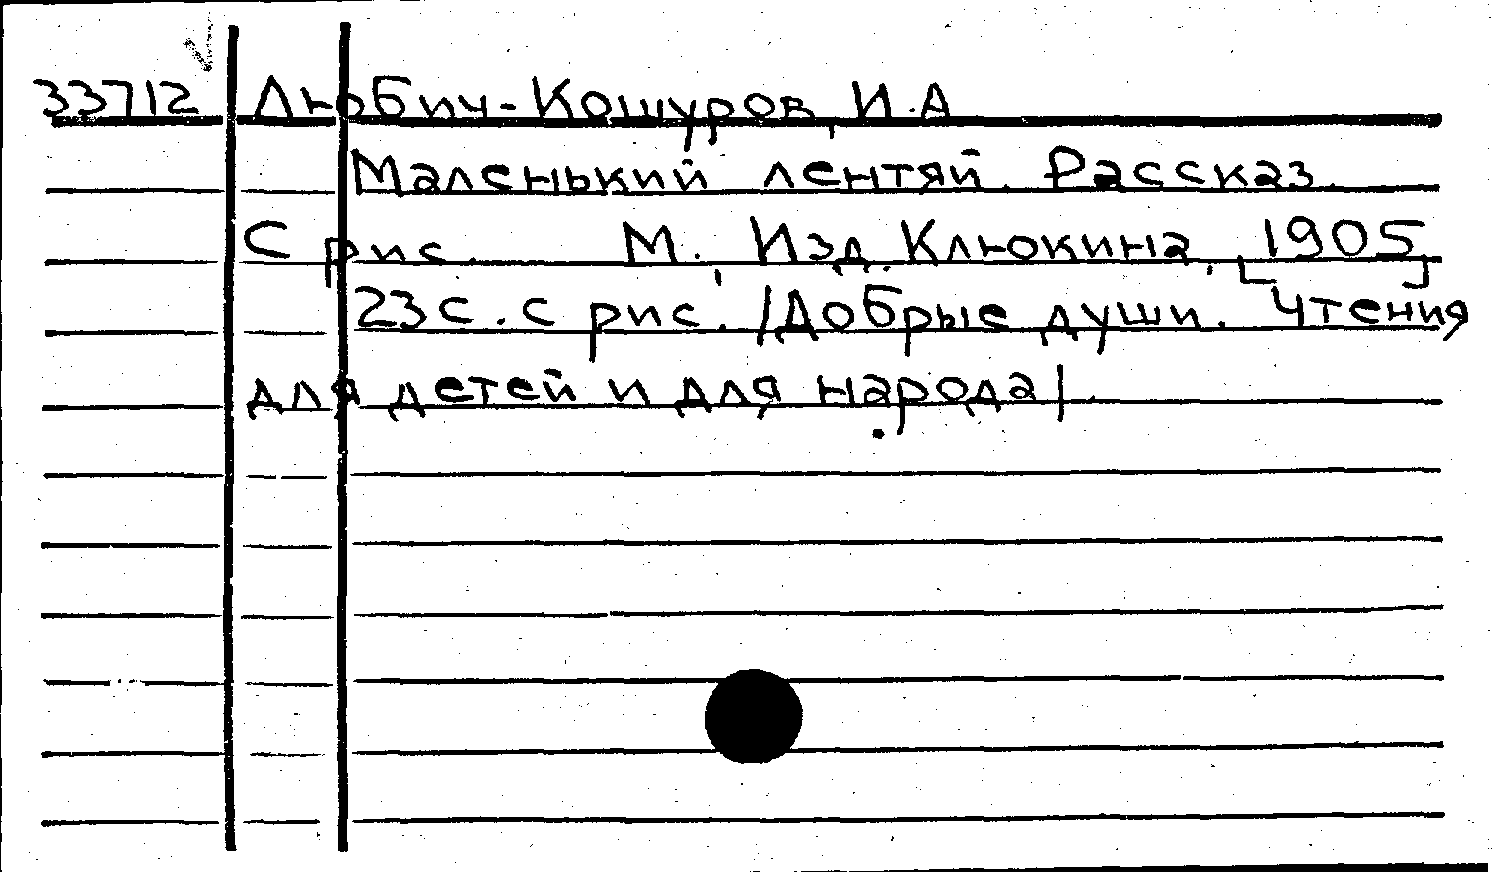 33712 Любич-Кошуров, И.А
Маленький лентяй. Рассказ.
С рис. М., Изд. Клюкина, [1905]
23 с. с рис. /Добрые души. Чтения
для детей и для народа/.